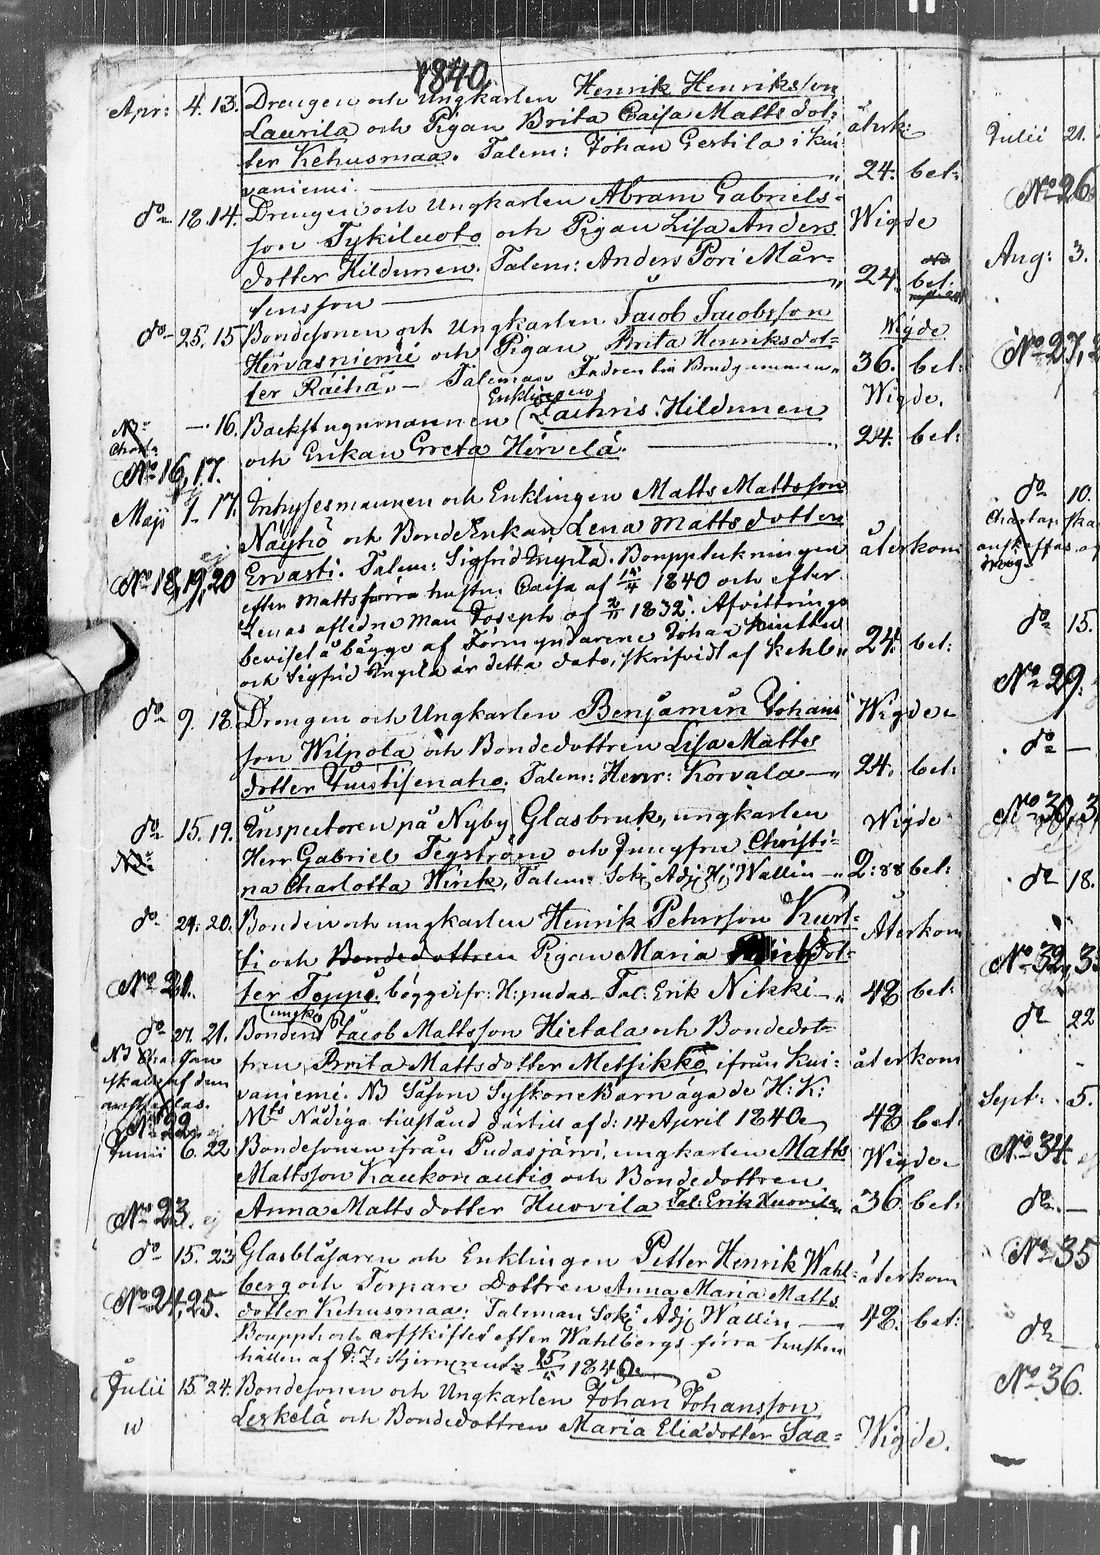 1840.
Apr: 4. 13. Drengen och Ungkarlen Henrik Henriksson
Laurila och Pigan Brita Caisa Matts dot= återk:
ter Kehusmaa. Talem: Johan Gertila i Kui
vaniemi. 24. bet:
do 18. 14. Drengen och Ungkarlen Abram Gabriels= Wigde
son Tykiluoto och Pigan Lisa Anders
dotter Hildunen. Talem: Anders Pori Mår= 24. bet:
tensson
do 25. 15 Bondesonen och Ungkarlen Jacob Jacobsson Wigde
Hervasniemi och Pigan Brita Henriksdot=
ter Raihä. — Taleman 36. bet:
Enklingen
— 16. Backstugumannen Zachris Hildunen Wigde.
och Enkan Greta Hervelä. 24. bet:
No 16, 17.
Maji 7. 17. Inhysesmannen och Enklingen Matts Mattsson
Näyhö och BondeEnkan Lena Mattsdotter
No 18, 19, 20 Ervasti. Talem: Sigfrid Ingilä. Bouppteckningen återkom
efter Matts förra hustru Caisa af 1840 och efter
Lenas afledne man Joseph af 1832. Afvittrings
beviset å bägge af Förmyndarene Johan 24. bet:
och Sigfrid Ingilä är detta dato, skrifvidt af Kehl
do 9. 18. Drengen och Ungkarlen Benjamin Johans Wigde
son Wilpola och Bondedottren Lisa Matts
dotter Turtisenaho. Talem: Henr: Korvala — 24. bet:
do 15. 19. Inspectoren på Nyby Glasbruk, ungkarlen Wigde
Herr Gabriel Tegström och Jungfru Christi=
na Charlotta Wirik, Talem: Sok: Adj: Hr Wallin — 2:88 bet:
do 24. 20. Bonden och ungkarlen Henrik Pehrsson Kurt= Återkom
ti och Bondedottren Pigan Maria dot=
No 21. ter Toppo. bägge ifr: H:pudas. Tal: Erik Nikki — 48 bet:
ungk
do 27. 21. Bonden Jacob Mattsson Hietala och Bondedot=
tren Brita Mattsdotter Metsikkö ifrån Kui= återkom
vaniemi. NB Såsom SyskoneBarn äga de H: K:
Mts Nådiga tillstånd dertill af d: 14 April 1840. 48. bet:
No 22.
Junii 6. 22 Bondesonen ifrån Pudasjärvi, ungkarlen Matts Wigde
Mattsson Kaukonautio och Bondedottren
No 23. Anna Matts dotter Huovila Tal: Erik Huovila 36. bet:
do 15. 23 Glasblåsaren och Enklingen Petter Henrik Wahl= återkom
No 24, 25. berg och Torpare Dottren Anna Maria Matts
dotter Kehusmaa. Taleman Sok: Adj: Wallin — 48. bet:
Bouppt: och arfskiftet efter Wahlbergs förra hustru
hållen af 1840.
Julii 15. 24. Bondesonen och Ungkarlen Johan Johansson
Leskelä och Bondedottren Maria Eliædotter Saa= Wigde.
Julii 21.
No 26.
Aug: 3.
No 27,
do 10.
do 15.
No 29.
do —
No 30, 3
do 18.
No 32, 3
do 22
Sept: 5.
No 34
do. —
No 35
do
No 36.